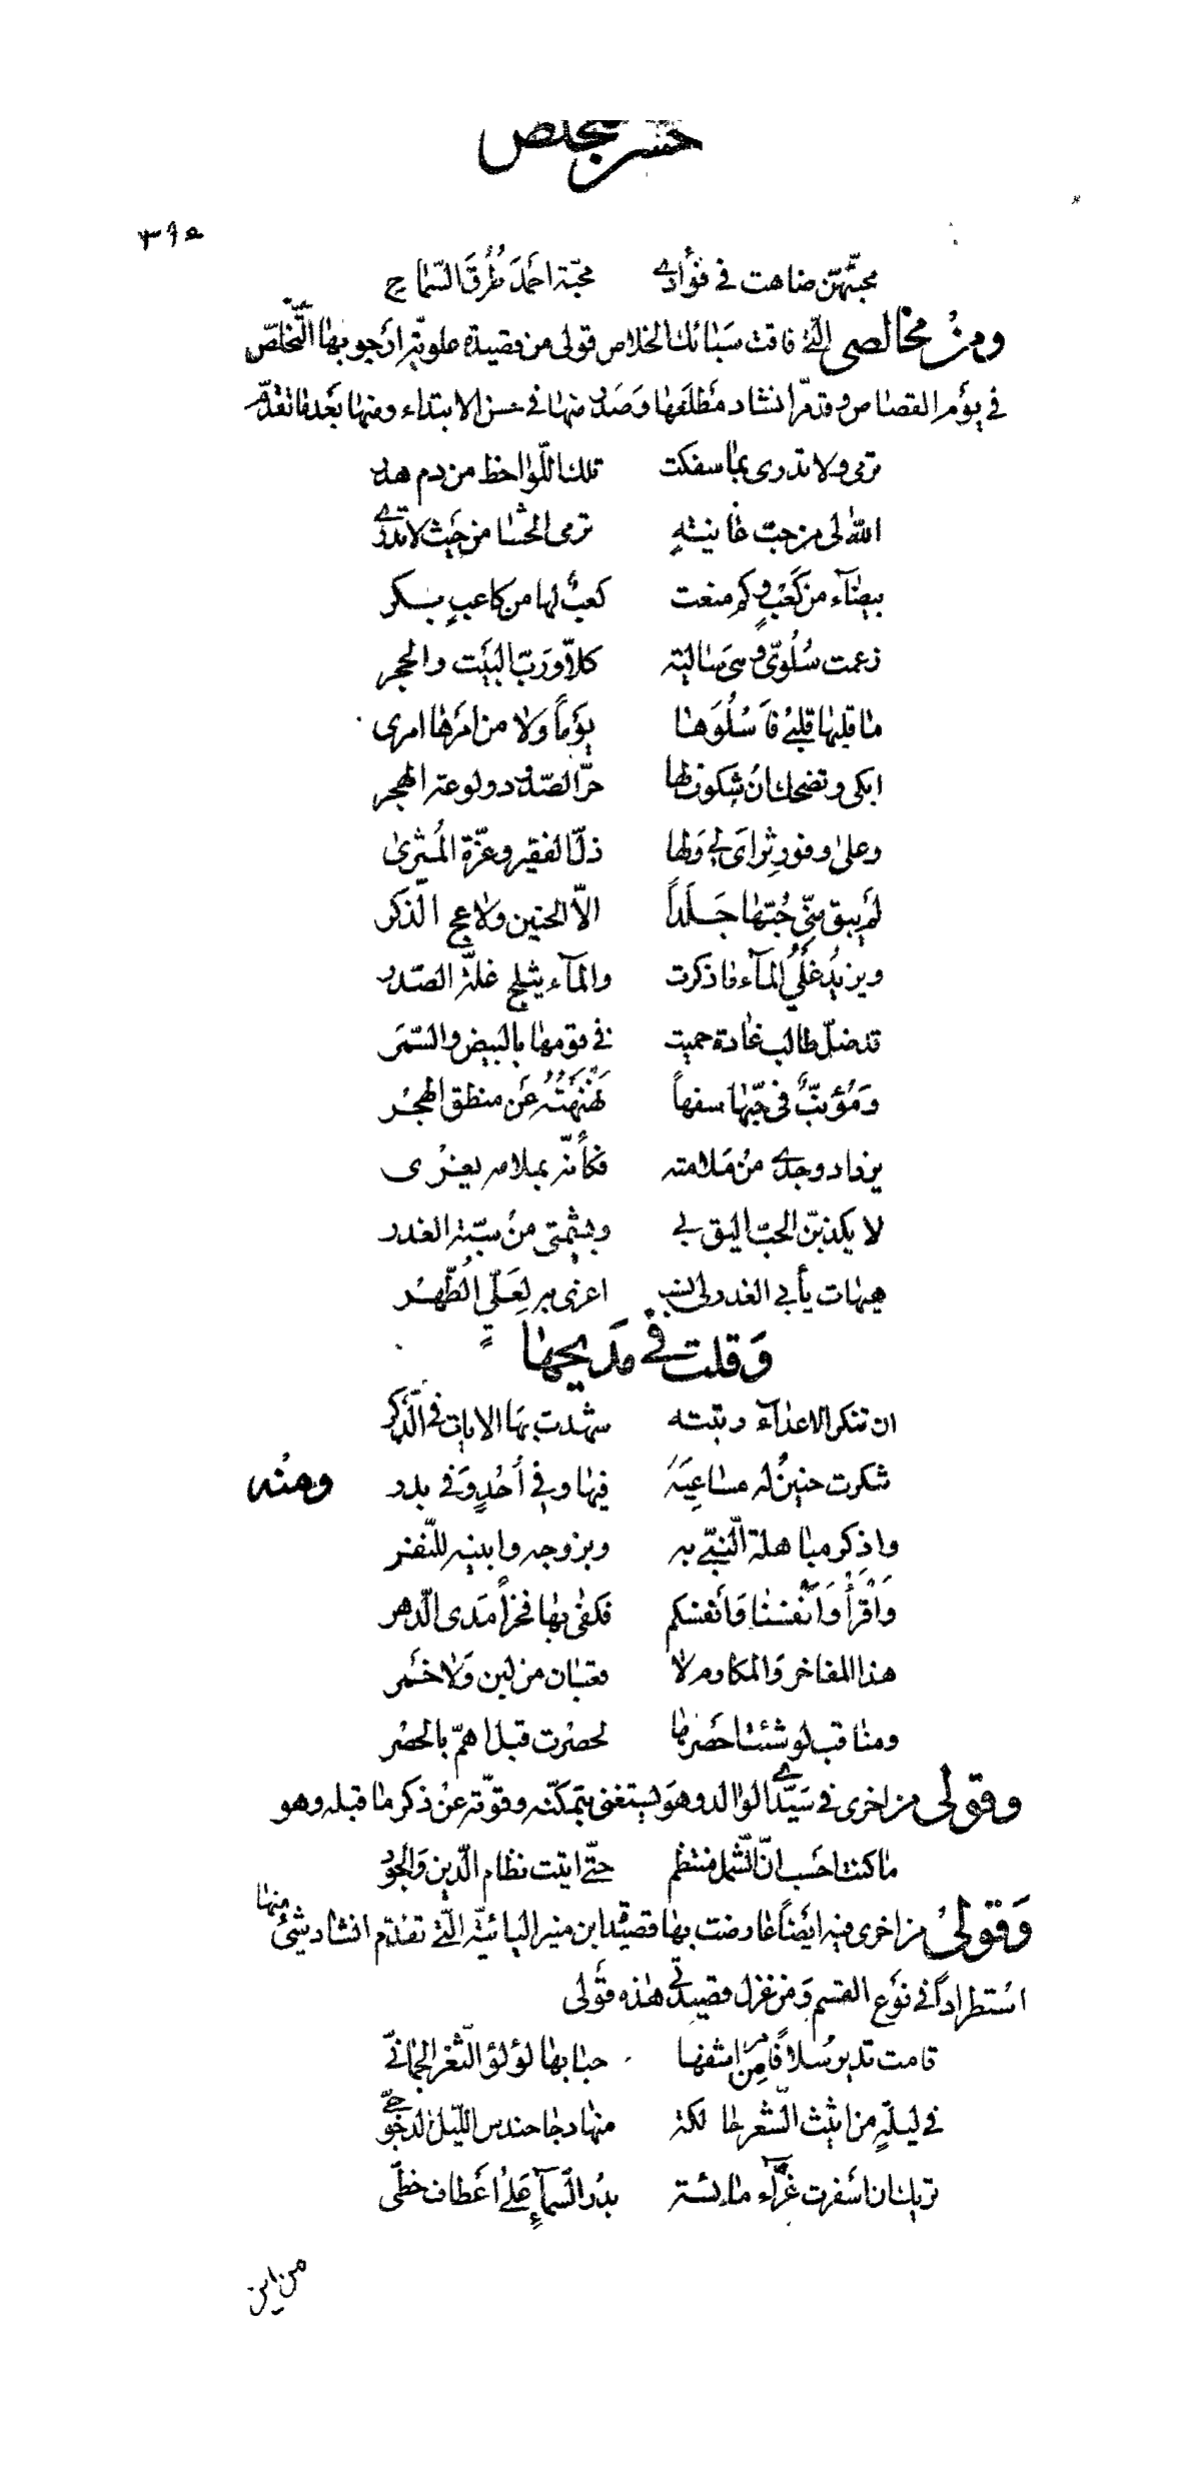 حسن التخلص
٣٩٥
محبّتهنّ ضاهت في فؤادي محبّة احمَدَ طُرقَ السّماح
ومنْ مخالصى الّتي فاقت سَبائك الخلاص قولى من قصيدة علويّة ارْجو بها التّخلّص
في يوْم القصاص وقدمرّ انشاد مَطلعَها وَصَدر منها في حسن الابتداء ومنها بَعْد ما تقدّم
ترمى ولا تدرى بما سفكت تلك اللّواحظ من دم هدر
اللّه لى من حبّ غانيةٍ ترمى الحشا من حَيث لا تدرى
بيضآء من كَعْبٍ وكم منعت كعبٌ لها من كاعبٍ بكر
زعمت سُلُوّى وهى سَالية كلاّ ورَبّ البَيْت والحجر
ما قلبها قلبى فَاَسْلُوَها يوْماً وَلا من امْرها امرى
ابكى وتضحك انْ شكوت لها حرّ الصّدود ولوعة الهجر
وعلى وفور ثراىَ لى وَلها ذلّ الفقير وعزّة المُثرى
لمْ يبق منّى حُبّها جَلَداً الاّ الحنين ولاعج الذّكر
ويزيد غلّى المآء ما ذكرت والمآء يثلج غلّة الصّدر
قد ضلّ طالب غادة حميت في قومها بالبيض والسّمر
وَمُؤنّبٌ في حبّها سفهاً نهنهتُه عَن منطق الهجْر
يزداد وجدى منْ مَلامته فكأنّه بملامه يغرى
لا يكذبنّ الحبّ اليق بى وبشيمتى منْ سبّة الغدر
هيهات يأبى الغدر لى نسب اعزى به لعَلىّ الطّهْر
وَقلت في مَديحها
ان تنكر الاعدآء رتبته شهدت بها الايات في الذّكر
شكرت حنينٌ له مساعيَهُ فيها وفي اُحُدٍ وَفي بدر ومنْه
واذكر مباهلة النّبىّ به وبزوجه وابنيه للنّفر
وَاقْرأ وَاَنْفسنا وَانفسكم فكفى بها فخراً مَدى الدّهر
هذا المفاخر وَالمكارم لا قعبان من لبن وَلا خمر
ومناقب لو شئت احَصرها لحصرْت قبل اهمّ بالحصْر
وقولى من اخرى في سَيّدى الوالد وهوَ يستغنى بتمكّنه وقوّته عنْ ذكر ما قبله وهو
ما كنت احَسب انّ الشّمل منتظم حتّى اتيت نظام الدّين وَالجود
وَقولىْ من اخرى فيه ايضَاً عارضت بها قصيْدة ابن منير اليائيّة الّتي تقدّم انشاد شئ منها
اسْتطراداً في نوْع القسم وَمن غزل قصيدتى هذه قَولى
قامت تدير سُلافاً من مراشفها حبابها لؤلؤ الثّغر الجمانىّ
في ليلةٍ من اثيث الشّعر حالكة منها دجا حندس اللّيل الدّجوجىّ
تريك ان اسَفرت غرّاء مائسة بدْر السّمآء عَلىْ اَعطاف خطّى
من اين